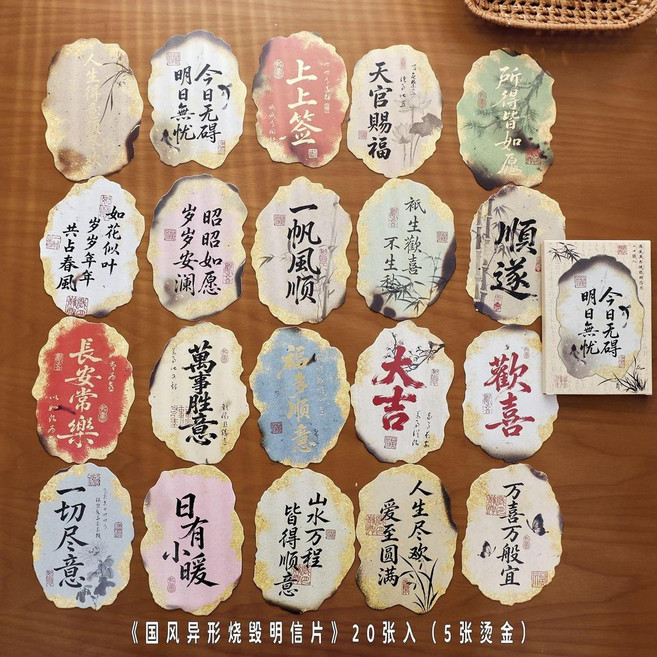 人生得
今日无碍
明日無忧
上上签
天官赐福
所得皆如愿
如花似叶
岁岁年年
共占春風
昭昭如愿
岁岁安澜
一帆風順
祇生歡喜
不生愁
順遂
今日无碍
明日無忧
長安常樂
萬事胜意
福多顺意
大吉
歡喜
一切尽意
日有小暖
山水万程
皆得顺意
人生尽欢
爱至圆满
万喜万般宜
《国风异形烧毁明信片》20张入（5张烫金）